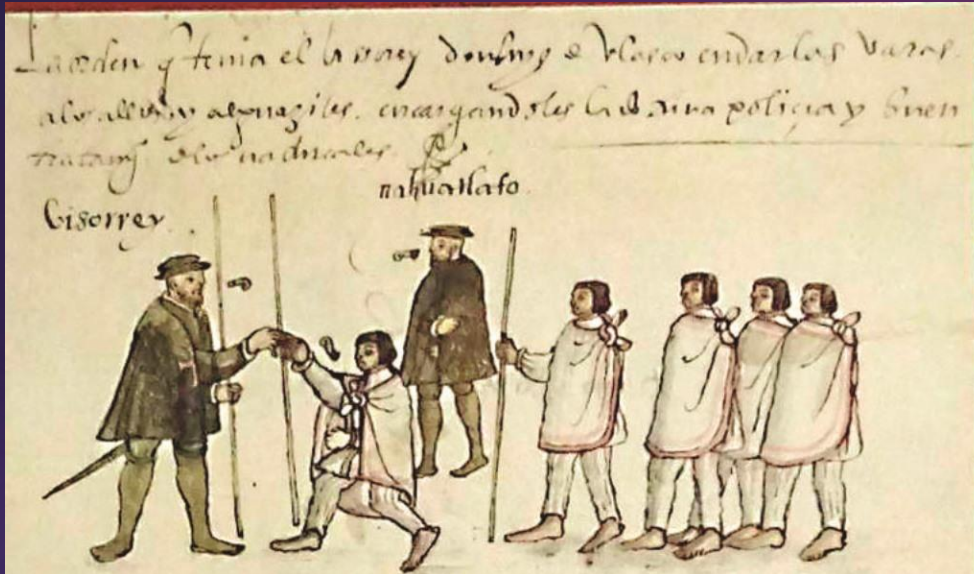 La orden q tenia el bisorrey don luys de Velasco en dar las varas
a los alldes y alguaziles. encargandoles la doctrina poliçia y buen
tratamy° de los naturales
nahuatlato
bisorrey